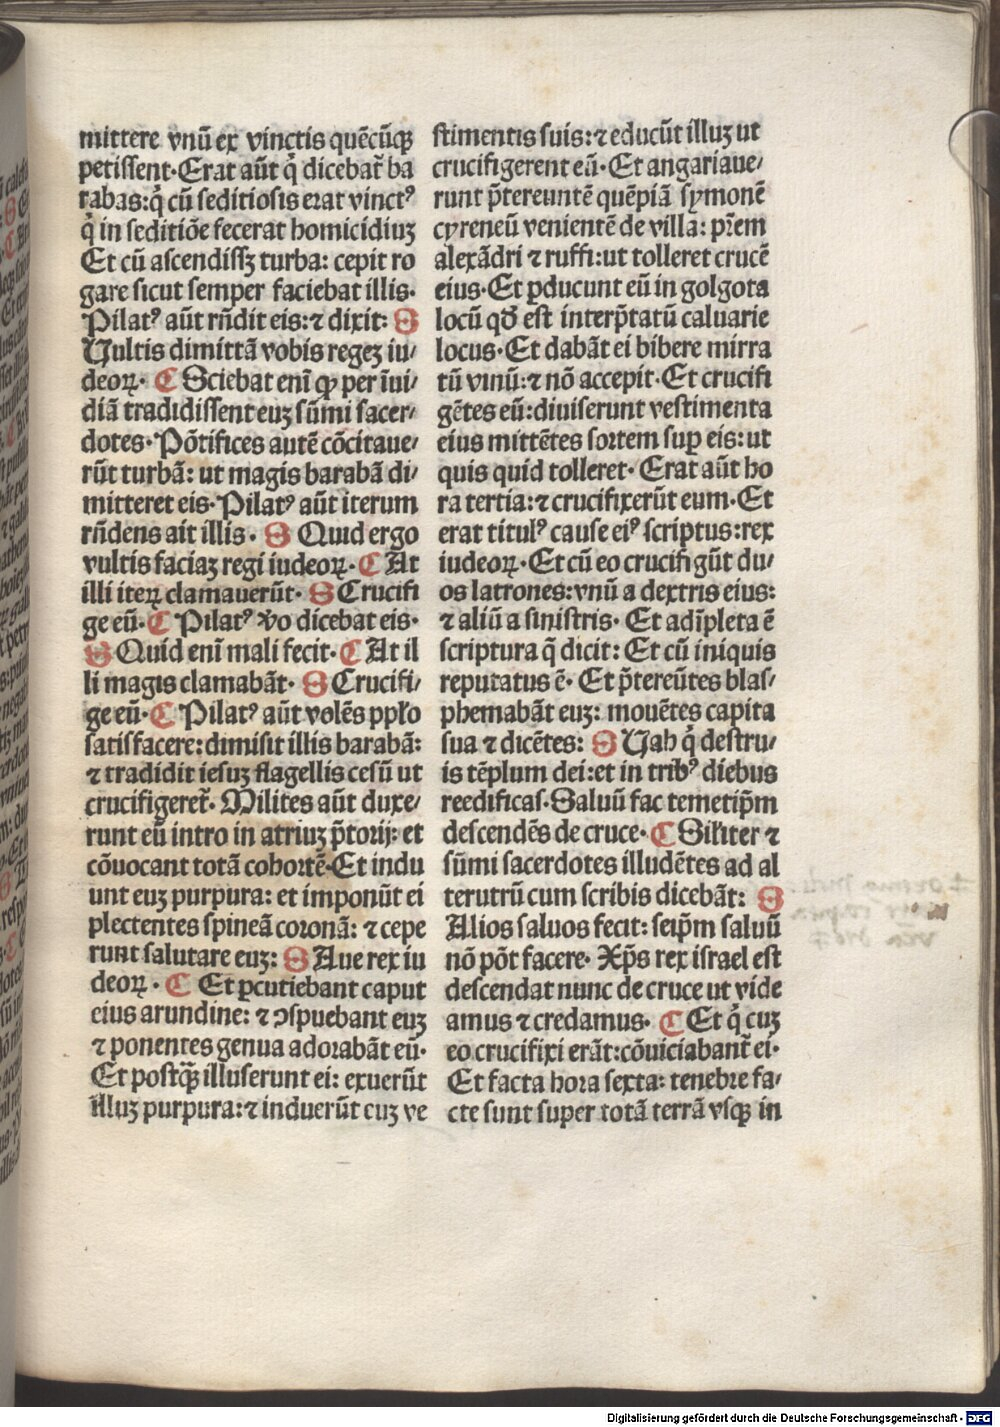 mittere vnū ex vinctis quēcūqꝫ
petissent·Erat aūt q̇ dicebat᷑ ba
rabas:q̇ cū seditiosis erat vinctꝰ
q̇ in seditiōe fecerat homicidiuꝫ
Et cū ascendissꝫ turba: cepit ro
gare sicut semper faciebat illis·
Pilatꝰ aūt rn̄dit eis:⁊ dixit: S
Vultis dimittā vobis regeꝫ iu/
deoꝝ· C Sciebat eni̅ ꝙ per īui/
diā tradidissent euꝫ sūmi sacer/
dotes·Pōtifices autē cōcitaue/
rūt turbā: ut magis barabā di/
mitteret eis·Pilatꝰ aūt iterum
rn̄dens ait illis· S Quid ergo
vultis faciaꝫ regi iudeoꝝ· C At
illi iteꝝ clamauerūt· S Crucifi
ge eū· C Pilatꝰ v̊o dicebat eis·
S Quid eni̅ mali fecit· C At il
li magis clamabāt· S Crucifi/
ge eū· C Pilatꝰ aūt volēs ppło
satisfacere: dimisit illis barabā:
⁊ tradidit iesuꝫ flagellis cesū ut
crucifigeret᷑· Milites aūt duxe/
runt eū intro in atriuꝫ p̄torij: et
cōuocant totā cohortē·Et indu
unt euꝫ purpura: et imponūt ei
plectentes spineā coronā: ⁊ cepe
runt salutare euꝫ: S Aue rex iu
deoꝝ· C Et ꝑcutiebant caput
eius arundine: ⁊ ↄspuebant euꝫ
⁊ ponentes genua adorabāt eū·
Et postq̄ꝫ illuserunt ei: exuerūt
illuꝫ purpura:⁊ induerūt cuꝫ ve
stimentis suis:⁊ educūt illuꝫ ut
crucifigerent eū· Et angariaue/
runt p̄tereuntē quēpiā symonē
cyreneū venientē de villa: pr̄em
alexādri ⁊ ruffi:ut tolleret crucē
eius·Et ꝓducunt eū in golgota
locū qđ est interp̄tatū caluarie
locus·Et dabāt ei bibere mirra
tū vinū:⁊ nō accepit·Et crucifi
gētes eū:diuiserunt vestimenta
eius mittētes sortem suꝑ eis: ut
quis quid tolleret· Erat aūt ho
ra tertia:⁊ crucifixerūt eum·Et
erat titulꝰ cause eiꝰ scriptus:rex
iudeoꝝ·Et cū eo crucifigūt du/
os latrones:vnū a dextris eius:
⁊ aliū a sinistris· Et adīpleta ē
scriptura q̄ dicit: Et cū iniquis
reputatus ē· Et p̄tereūtes blas/
phemabāt euꝫ: mouētes capita
sua ⁊ dicētes: S Vah q̇ destru/
is tēplum dei:et in tribꝰ diebus
reedificas·Saluū fac temetip̄m
descendēs de cruce· C Sił'iter ⁊
sūmi sacerdotes illudētes ad al
terutrū cum scribis dicebāt: S
Alios saluos fecit: seip̄m saluū
nō pōt facere· Xp̄s rex israel est
descendat nunc de cruce ut vide
amus ⁊ credamus· C Et q̇ cuꝫ
eo crucifixi erāt:cōuiciabant᷑ ei·
Et facta hora sexta: tenebre fa/
cte sunt super totā terrā vsqꝫ in
Digitalisierung gefördert durch die Deutsche Forschungsgemeinschaft - DFG